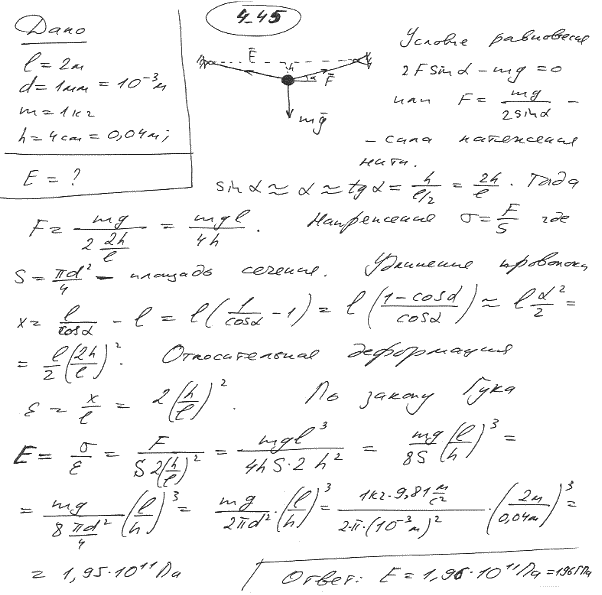 4.45
Дано
l = 2м
d = 1мм = 10⁻³м
m = 1кг
h = 4см = 0,04м;
E = ?
F h α F
mg
Условие равновесия
2Fsinα − mg = 0
или F = mg/(2sinα) −
− сила натяжения
нити.
sinα ≈ α ≈ tgα = h/(l/2) = 2h/l . Тогда
F = mg/(2 2h/l) = mgl/4h . Напряжение σ = F/S где
S = πd²/4 − площадь сечения. Удлинение проволоки
x = l/cosα − l = l(1/cosα − 1) = l((1−cosα)/cosα) ≈ l α²/2 =
= l/2 (2h/l)². Относительная деформация
ε = x/l = 2(h/l)². По закону Гука
E = σ/ε = F/(S2(h/l)²) = mgl³/(4hS·2h²) = mg/8S (l/h)³ =
= mg/(8 πd²/4) (l/h)³ = mg/(2πd²) · (l/h)³ = (1кг·9,81 м/с²)/(2·π·(10⁻³м)²) · (2м/0,04м)³ =
= 1,95·10¹¹Па
Ответ: E = 1,96·10¹¹Па = 196ГПа